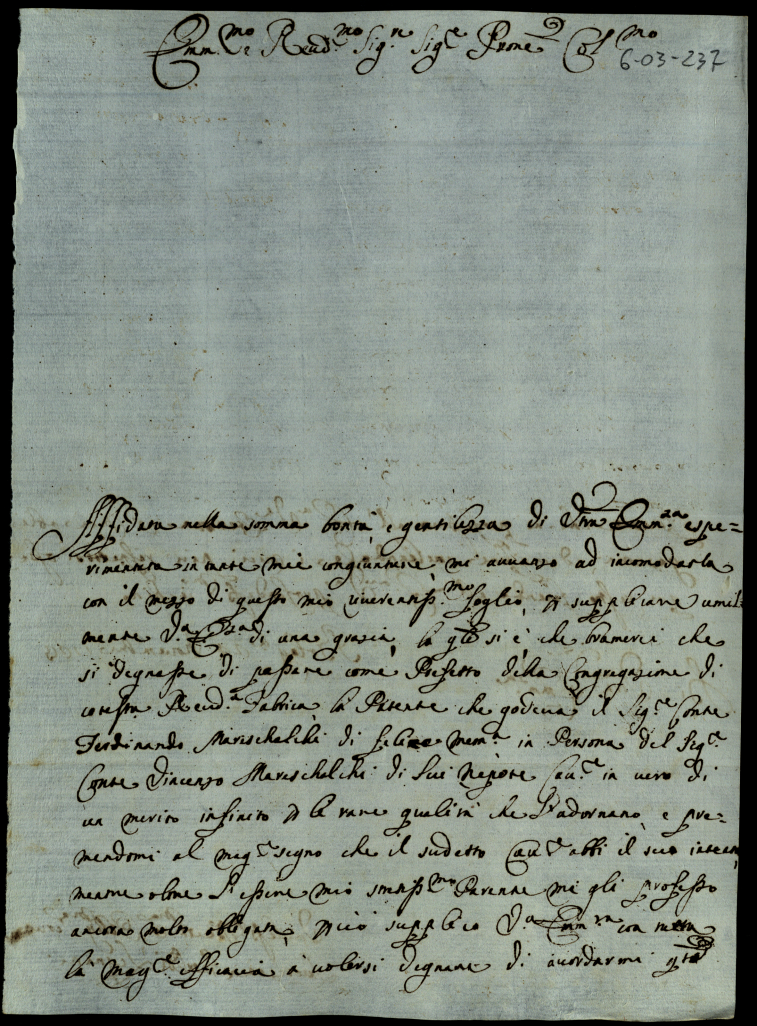 Emm.mo e Reud.mo Sig.re Sig.e Prone Col.mo
6-03-237
Affidata nella somma bontà, e gentilezza di Vra Emin.za espe=
rimentata in tante mie congiunture, mi auuanzo ad incomodarla
con il mezzo di questo mio riuerentiss.mo foglio, p supplicare umil=
mente V.a Em.za di una grazia, la qle si è, che bramerei che
si degnasse di passare come Prefetto della Congregazione di
cotesta Reud.a Fabrica, la Patente che godeua il Sig.e Conte
Ferdinando Marischalchi di felice mem.a in Persona del Sig.e
Conte Vincenzo Marischalchi di Lui Nepote Cau.e in uero di
un merito infinito p le rare qualità che l'adornano, e pre=
mendomi al magg.e segno che il sudetto Cau.e abbi il suo intento,
mentre oltre l'essere mio strettiss.mo Parente me gli professo
ancora molto obligata, p ciò supplico V.a Emin.za con tutta
la magg.e efficacia à uolersi degnare di accordarmi qta